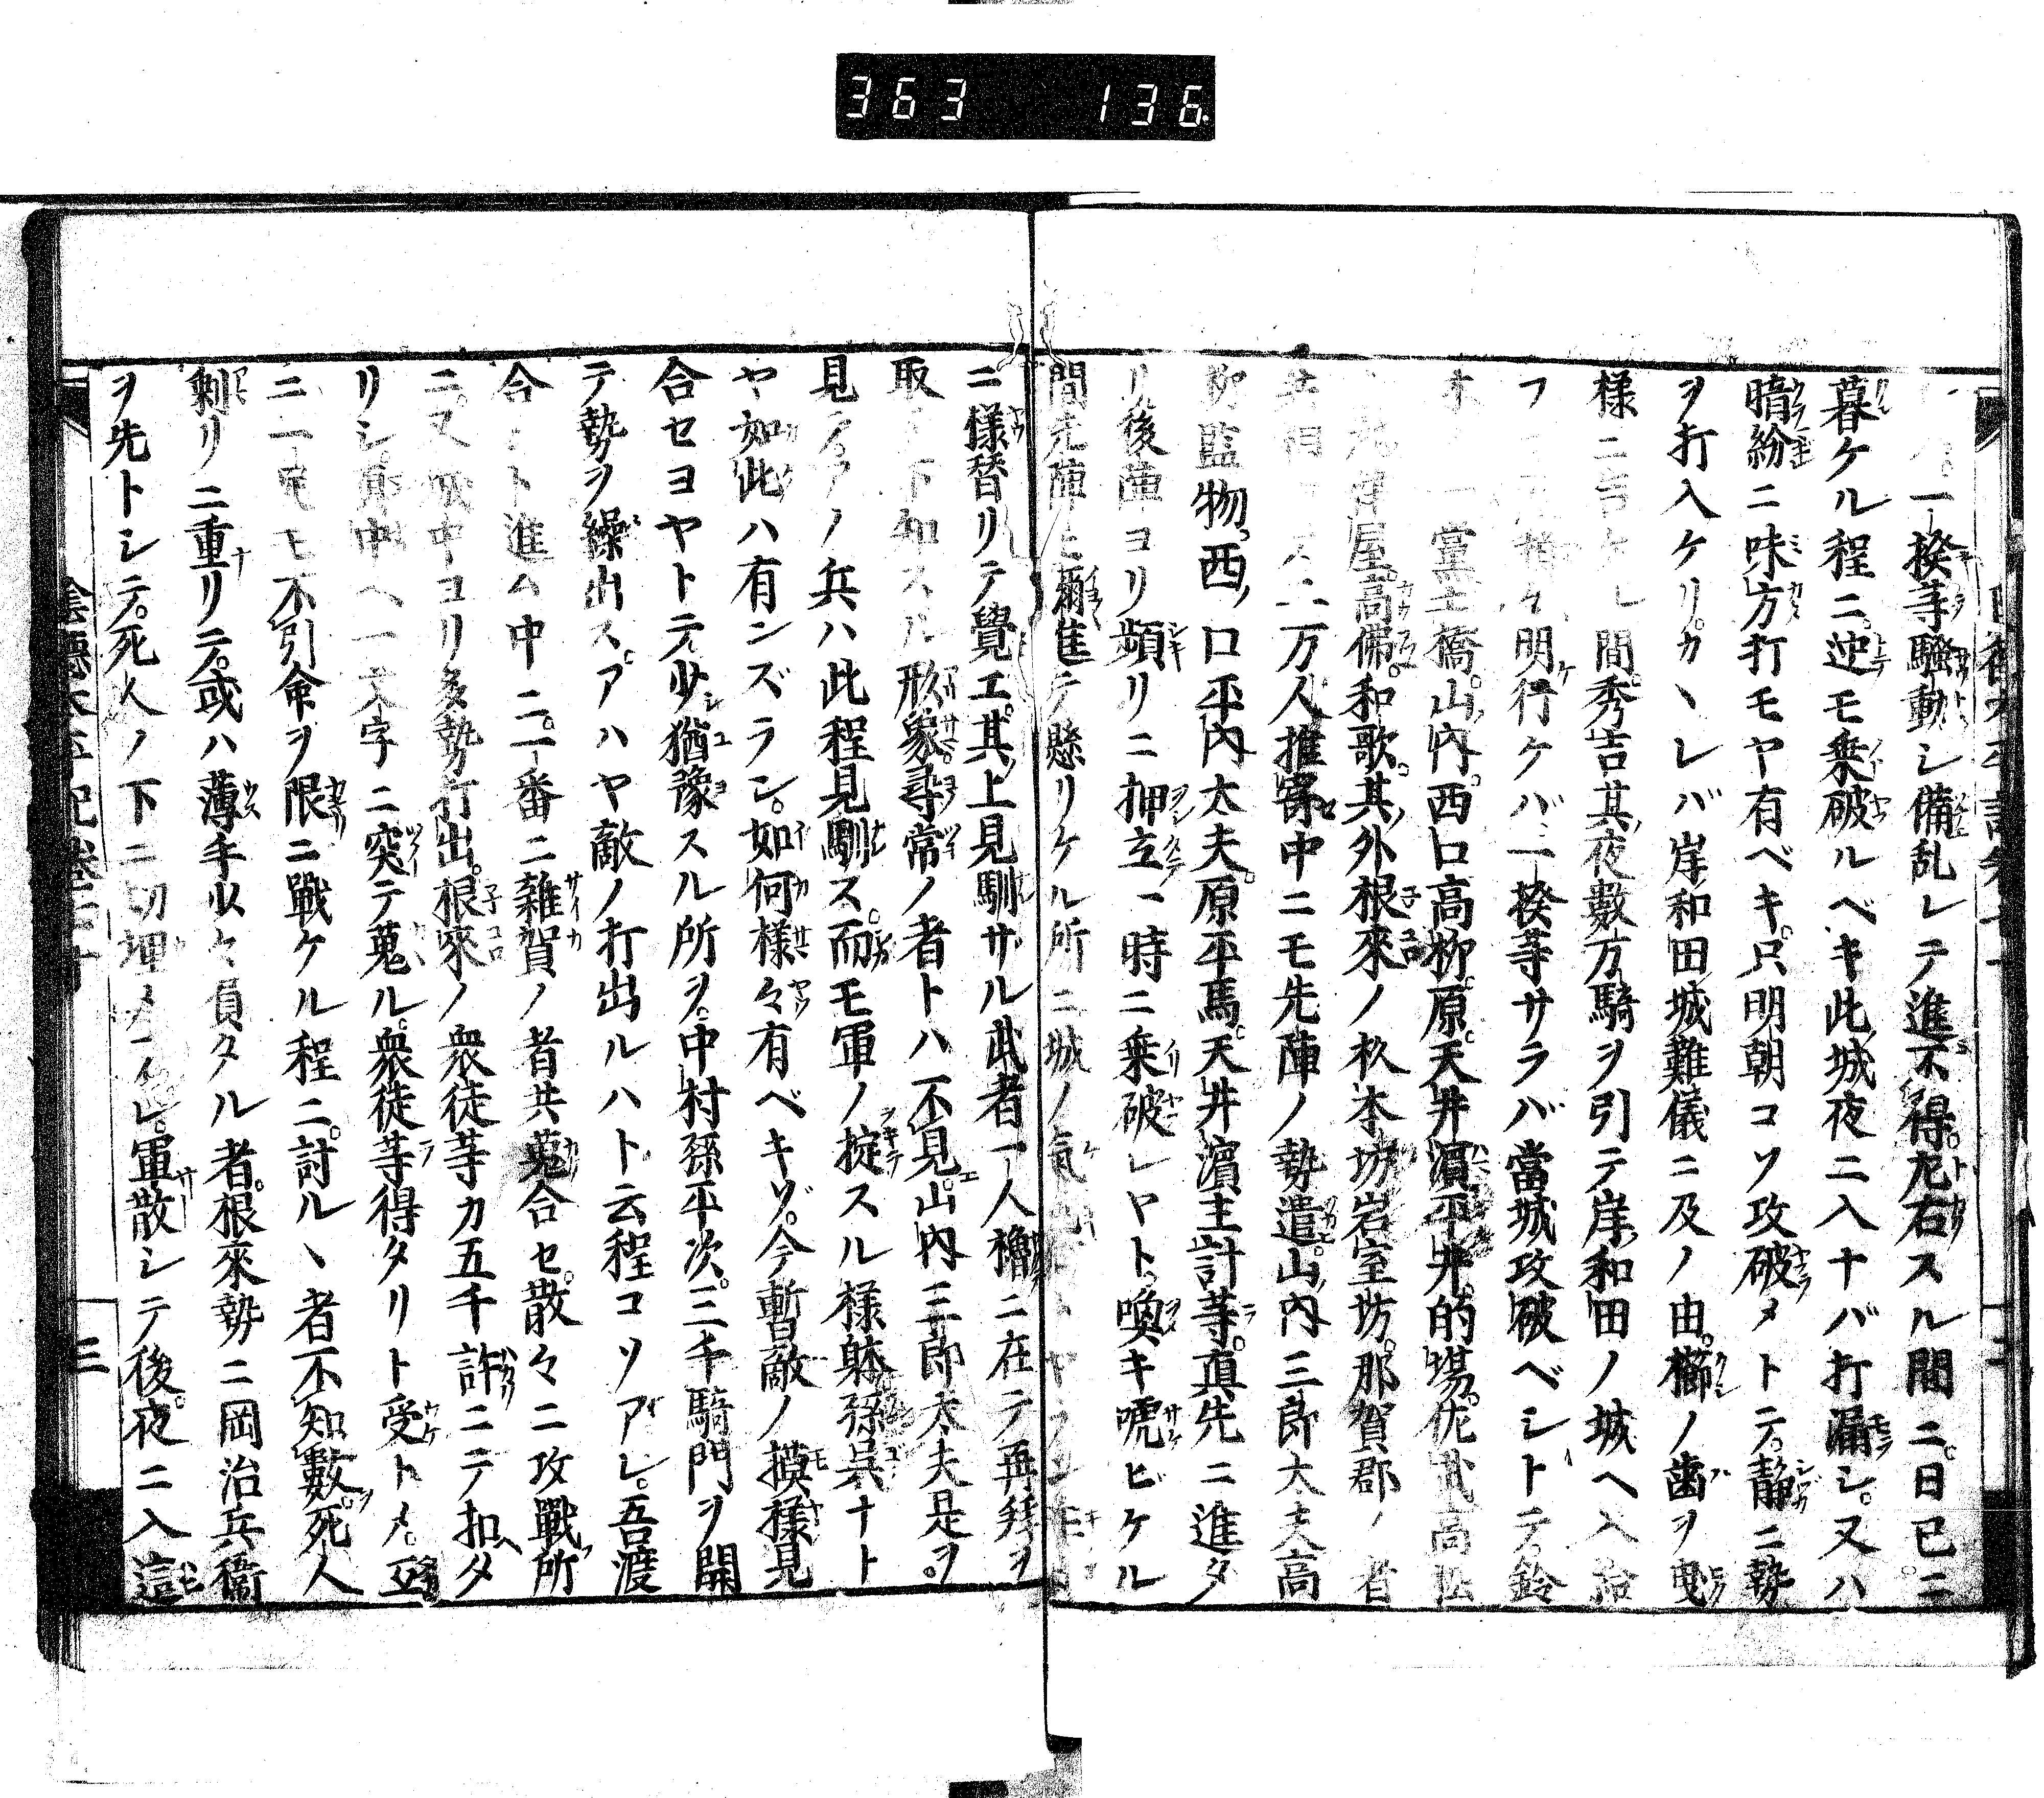 363 136
一揆等騒動シ備乱レテ進不得。左右スル間ニ。日已ニ
暮ケル程ニ。迚モ乗破ルベキ此城夜ニ入ナバ打漏シ。又ハ
暗紛ニ味方打モヤ有ベキ。只明朝コソ攻破メトテ。静ニ勢
ヲ打入ケリ。カヽレバ岸和田城難儀ニ及ノ由。櫛ノ歯ヲ曳
様ニ告ケレ間。秀吉其夜數万騎ヲ引テ岸和田ノ城ヘ入給
フ 明行ケバ一揆等サラバ當城攻破ベシトテ。鈴
木 一黨土橋。山内。西口高柳。原。天井濵平井。的場。佐武高松
屋。高佛。和歌。其外根來ノ杉本坊岩室坊。那賀郡ノ者
共 二万人推寄中ニモ先陣ノ勢遣。山内三郎大夫高
柳監物。西ノ口平内太夫。原平馬。天井濵主計等。真先ニ進タ
リ後陣ヨリ頻リニ押立一時ニ乗破レヤト。喚キ唬ビケル
間先陣 彌進テ懸リケル所ニ城ノ氣
ニ様替リテ覺エ。其上見馴サル武者一人櫓ニ在テ再拜ヲ
取テ下知スル形象。尋常ノ者トハ不見。山内三郎太夫是ヲ。
見テアノ兵ハ此程見馴ス。而モ軍ノ掟スル様躰孫呉ナト
ヤ如此ハ有ンズラン。如何様々有ベキゾ。今暫敵ノ摸様見
合セヨヤトテ少猶豫スル所ヲ。中村孫平次。三千騎門ヲ開
テ勢ヲ繰出ス。アハヤ敵ノ打出ルハト云程コソアレ。吾渡
合ント進ム中ニ。一番ニ雜賀ノ者共蒐合セ。散々ニ攻戰所
ニ。又城中ヨリ多勢打出。根來ノ衆徒等カ五千許ニテ扣ヘタ
リシ。真中ヘ一文字ニ突テ蒐ル。衆徒等得タリト受トメ。
ニ一足モ不引命ヲ限ニ戰ケル程ニ。討ルヽ者不知數。死人
剰リニ重リテ。或ハ薄手少々員タル者。根來勢ニ岡治兵衞
ヲ先トシテ。死人ノ下ニ切埋メーイレ。軍散シテ後。夜ニ入這
陰德太平記卷
三